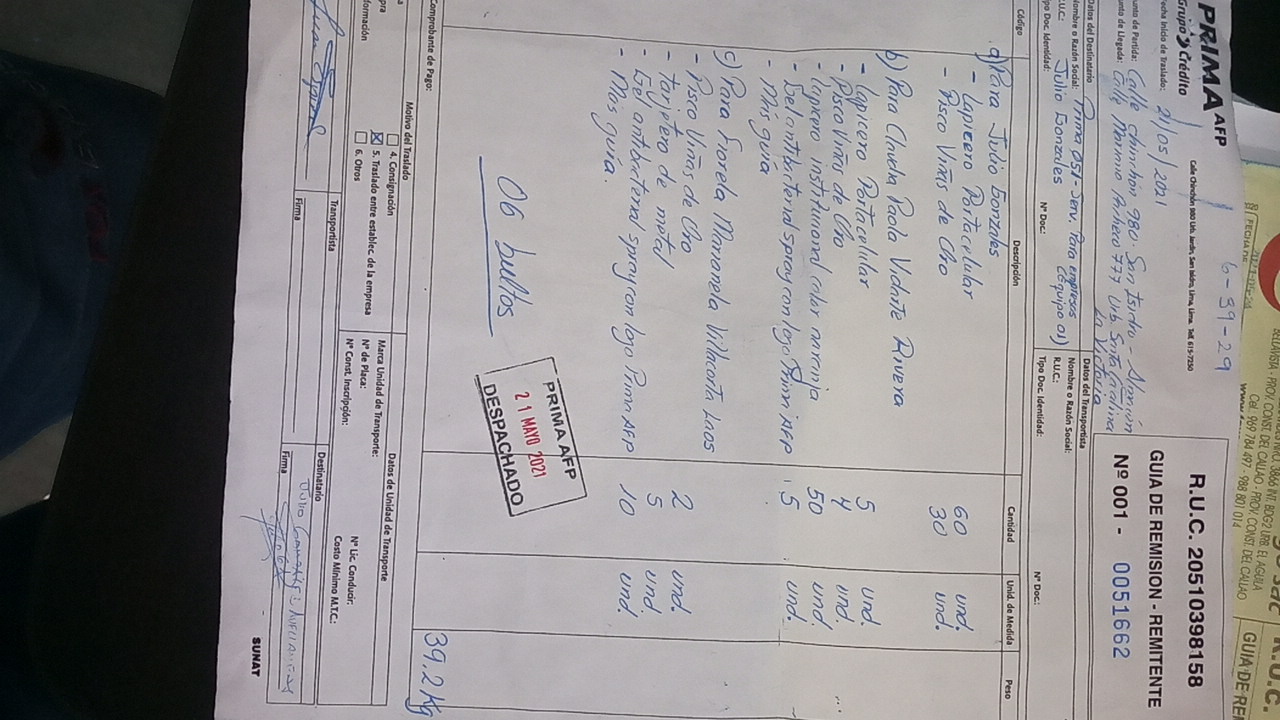 PRIMA AFP
Grupo Crédito
6-39-29
R.U.C. 20510398158
GUIA DE REMISION - REMITENTE
Nº 001 - 0051662
Fecha Inicio de Traslado: 21/05/2021
Punto de Partida: Calle chinchón 980 San Isidro -
Punto de Llegada: Calle 777 Urb. Santa Catalina
La Victoria
Datos del Destinatario
Nombre o Razón Social: Prima OST- Serv. Para empresas
R.U.C.: Julio Gonzales (equipo 01)
Tipo Doc. Identidad: Nº Doc:
Datos del Transportista
Nombre o Razón Social:
R.U.C.:
Tipo Doc. Identidad: Nº Doc:
Código Descripción Cantidad Unid. de Medida Peso
a) Para Julio Gonzales
- Lapicero Portacelular 60 und.
- Pisco Viñas de Cho 30 und.
b) Para Claudia Paola Vidarte Rivera
- Lapicero Portacelular 5 und.
- Pisco Viñas de Cho 4 und.
- Lapicero institucional color naranja 50 und.
- Gel antibacterial spray con logo Prima AFP 5 und.
- Más guía
c) Para Fiorela Marianela Villacorta Laos
- Pisco Viñas de Cho 2 und.
- Tarjetero de metal 5 und.
- Gel antibacterial spray con logo Prima AFP 10 und.
- Más guía.
06 bultos
PRIMA AFP
21 MAYO 2021
DESPACHADO
39.2 Kg
Comprobante de Pago:
Motivo del Traslado
4. Consignación
5. Traslado entre establec. de la empresa
6. Otros
Datos de Unidad de Transporte
Marca Unidad de Transporte:
Nº de Placa: Nº Lic. Conducir:
Nº Const. Inscripción: Costo Mínimo M.T.C.:
Transportista
Firma
Destinatario
Firma
SUNAT
CEL. 969 784 497 - 988 801 014
GUIA DE RE